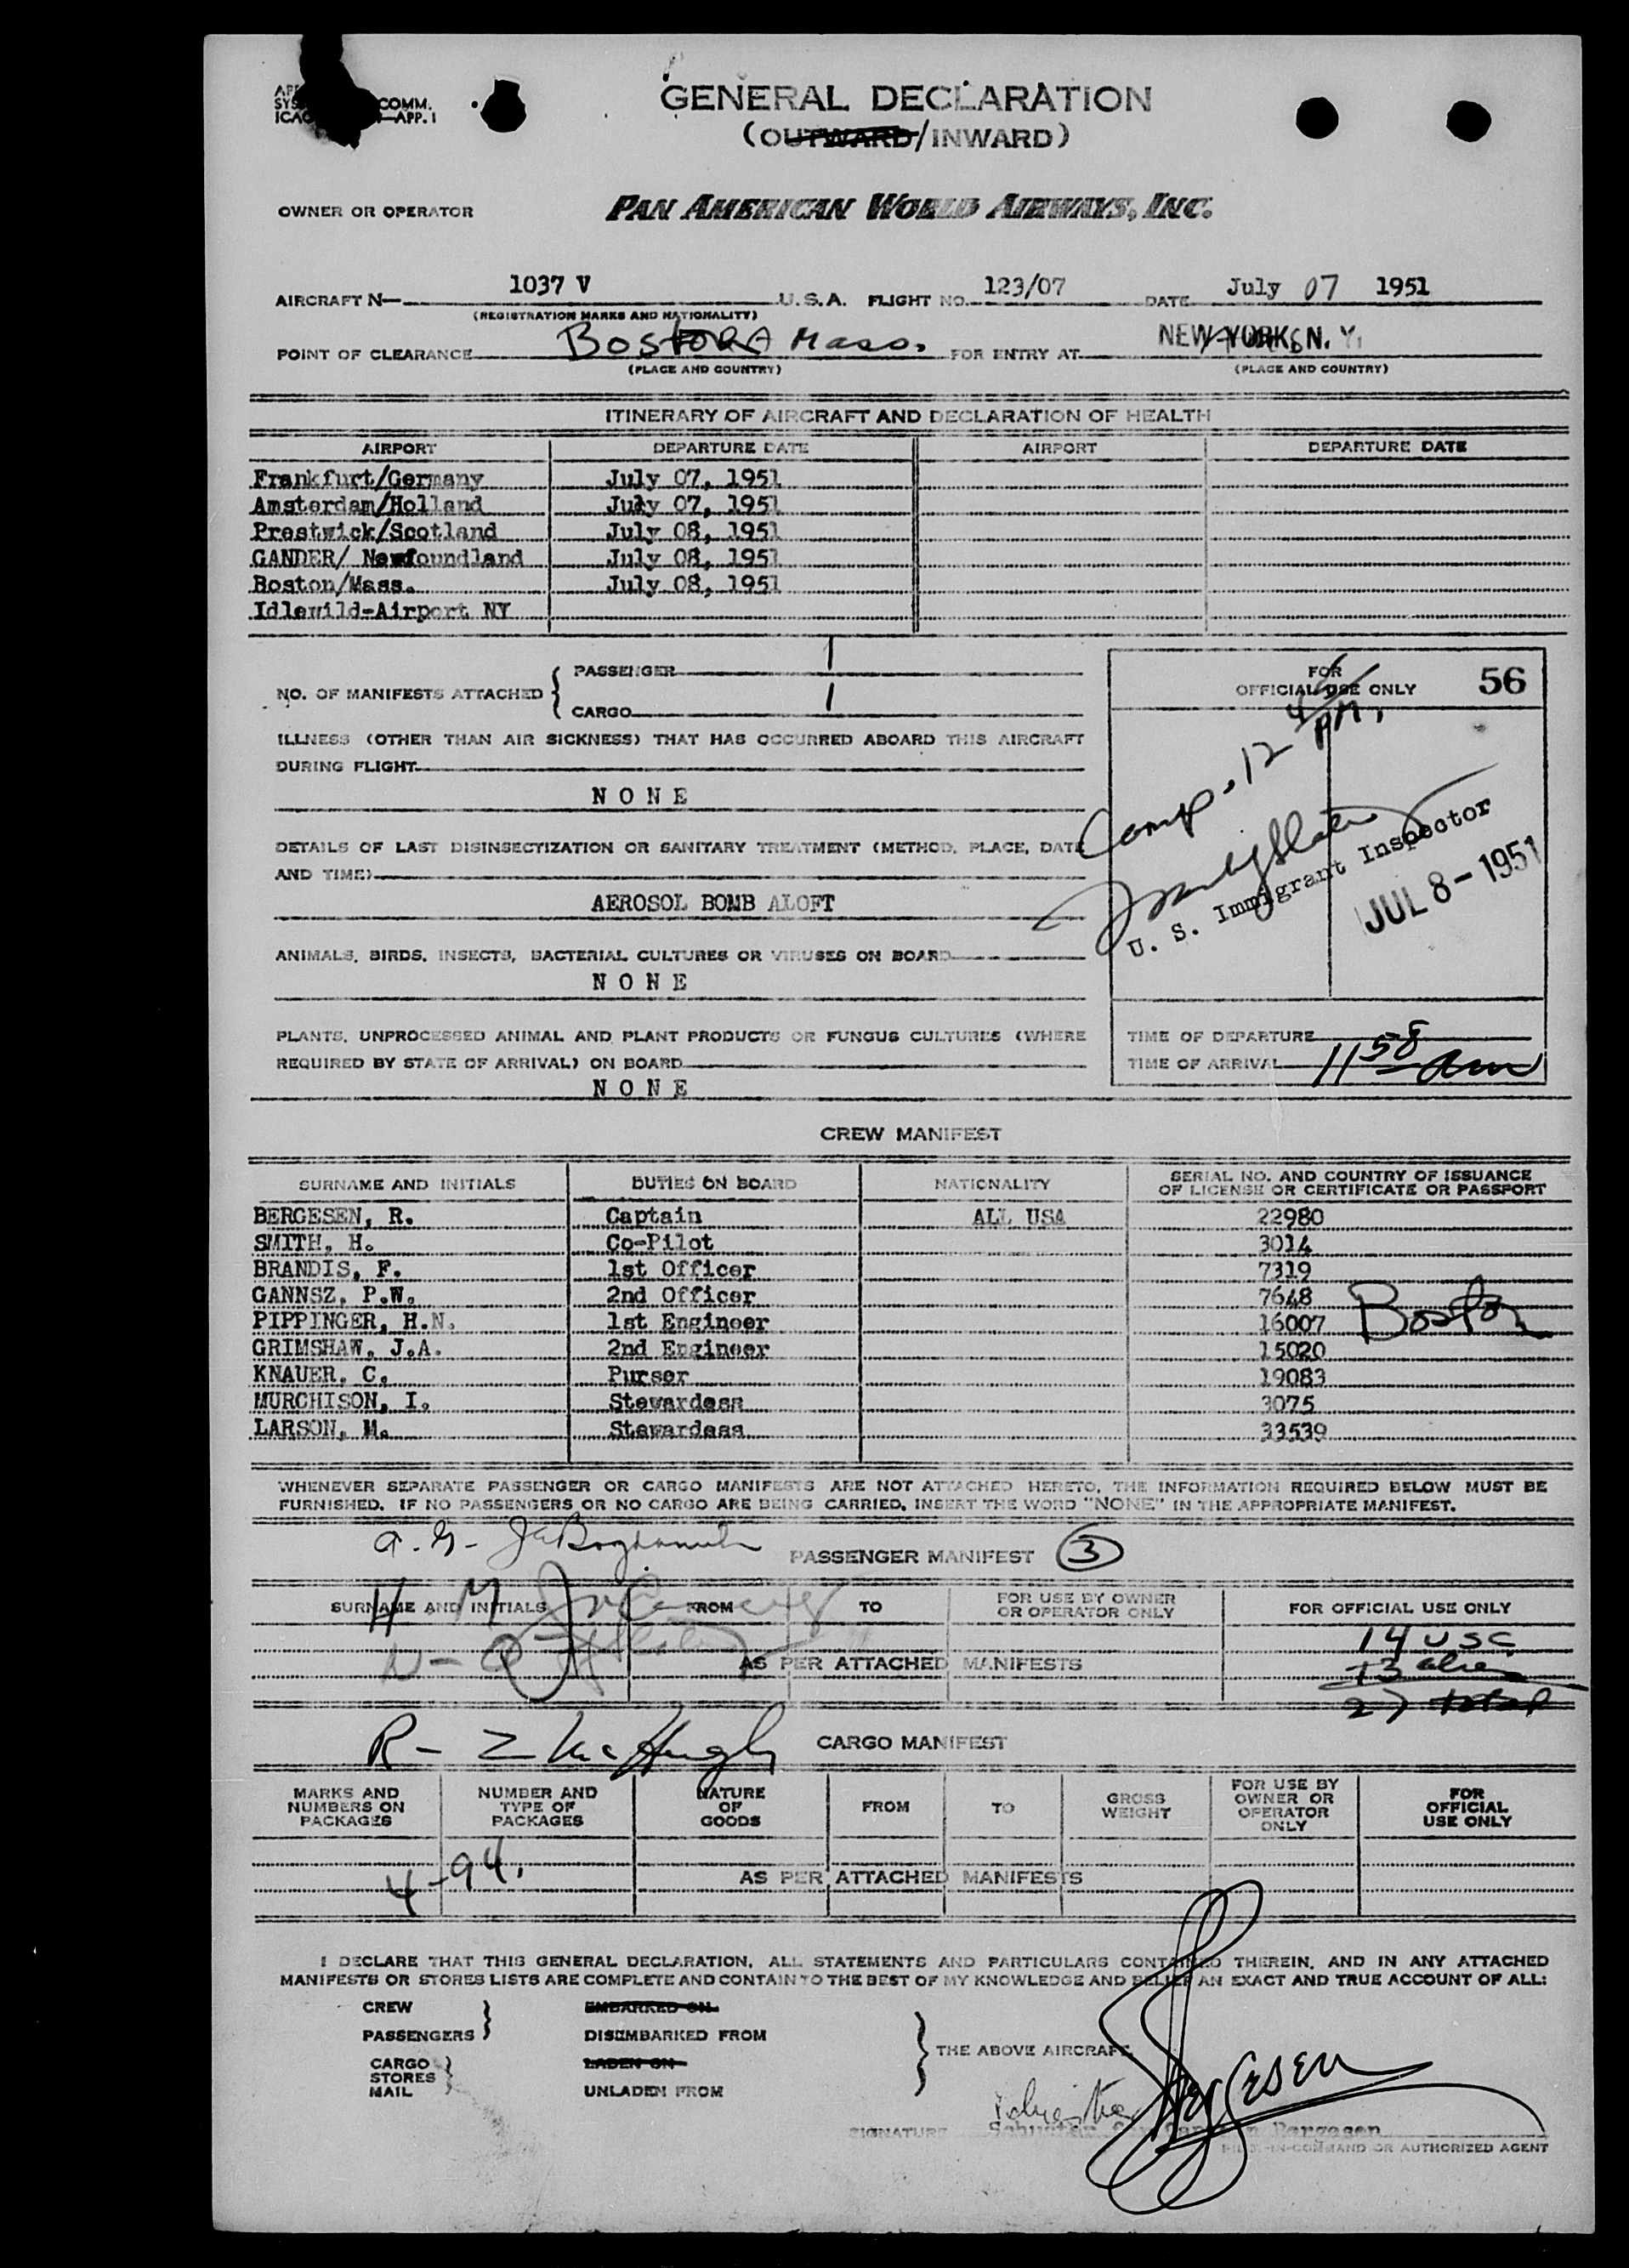 COMM.
—APP. 1
GENERAL DECLARATION
(OUTWARD/INWARD)
OWNER OR OPERATOR PAN AMERICAN WORLD AIRWAYS, INC.
AIRCRAFT N— 1037 V U.S.A. FLIGHT NO. 123/07 DATE July 07 1951
(REGISTRATION MARKS AND NATIONALITY)
POINT OF CLEARANCE Boston Mass. FOR ENTRY AT NEW YORK, N. Y.
(PLACE AND COUNTRY) (PLACE AND COUNTRY)
ITINERARY OF AIRCRAFT AND DECLARATION OF HEALTH
AIRPORT DEPARTURE DATE AIRPORT DEPARTURE DATE
Frankfurt/Germany July 07, 1951
Amsterdam/Holland July 07, 1951
Prestwick/Scotland July 08, 1951
GANDER/ Newfoundland July 08, 1951
Boston/Mass. July 08, 1951
Idlewild-Airport NY
NO. OF MANIFESTS ATTACHED { PASSENGER 1
CARGO 1
FOR OFFICIAL USE ONLY 56
ILLNESS (OTHER THAN AIR SICKNESS) THAT HAS OCCURRED ABOARD THIS AIRCRAFT
DURING FLIGHT
N O N E
DETAILS OF LAST DISINSECTIZATION OR SANITARY TREATMENT (METHOD, PLACE, DATE
AND TIME)
AEROSOL BOMB ALOFT
Comp. 12 45 PM.
U. S. Immigrant Inspector
JUL 8 - 1951
ANIMALS, BIRDS, INSECTS, BACTERIAL CULTURES OR VIRUSES ON BOARD
N O N E
PLANTS, UNPROCESSED ANIMAL AND PLANT PRODUCTS OR FUNGUS CULTURES (WHERE
REQUIRED BY STATE OF ARRIVAL) ON BOARD
N O N E
TIME OF DEPARTURE
TIME OF ARRIVAL 11 58 am
CREW MANIFEST
SURNAME AND INITIALS DUTIES ON BOARD NATIONALITY SERIAL NO. AND COUNTRY OF ISSUANCE OF LICENSE OR CERTIFICATE OR PASSPORT
BERGESEN, R. Captain ALL USA 22980
SMITH, H. Co-Pilot 3014
BRANDIS, F. 1st Officer 7319
GANNSZ, P.W. 2nd Officer 7648
PIPPINGER, H.N. 1st Engineer 16007 Boston
GRIMSHAW, J.A. 2nd Engineer 15020
KNAUER, C. Purser 19083
MURCHISON, I. Stewardess 3075
LARSON, M. Stewardess 33539
WHENEVER SEPARATE PASSENGER OR CARGO MANIFESTS ARE NOT ATTACHED HERETO, THE INFORMATION REQUIRED BELOW MUST BE
FURNISHED. IF NO PASSENGERS OR NO CARGO ARE BEING CARRIED, INSERT THE WORD "NONE" IN THE APPROPRIATE MANIFEST.
PASSENGER MANIFEST 3
SURNAME AND INITIALS FROM TO FOR USE BY OWNER OR OPERATOR ONLY FOR OFFICIAL USE ONLY
14 USC
13 alien
27 total
AS PER ATTACHED MANIFESTS
CARGO MANIFEST
MARKS AND NUMBERS ON PACKAGES NUMBER AND TYPE OF PACKAGES NATURE OF GOODS FROM TO GROSS WEIGHT FOR USE BY OWNER OR OPERATOR ONLY FOR OFFICIAL USE ONLY
4-94.
AS PER ATTACHED MANIFESTS
I DECLARE THAT THIS GENERAL DECLARATION, ALL STATEMENTS AND PARTICULARS CONTAINED THEREIN, AND IN ANY ATTACHED
MANIFESTS OR STORES LISTS ARE COMPLETE AND CONTAIN TO THE BEST OF MY KNOWLEDGE AND BELIEF AN EXACT AND TRUE ACCOUNT OF ALL:
CREW EMBARKED ON
PASSENGERS DISEMBARKED FROM
THE ABOVE AIRCRAFT
CARGO LADEN ON
STORES
MAIL UNLADEN FROM
Bergesen
SIGNATURE Schuster Bergesen
IN-COMMAND OR AUTHORIZED AGENT